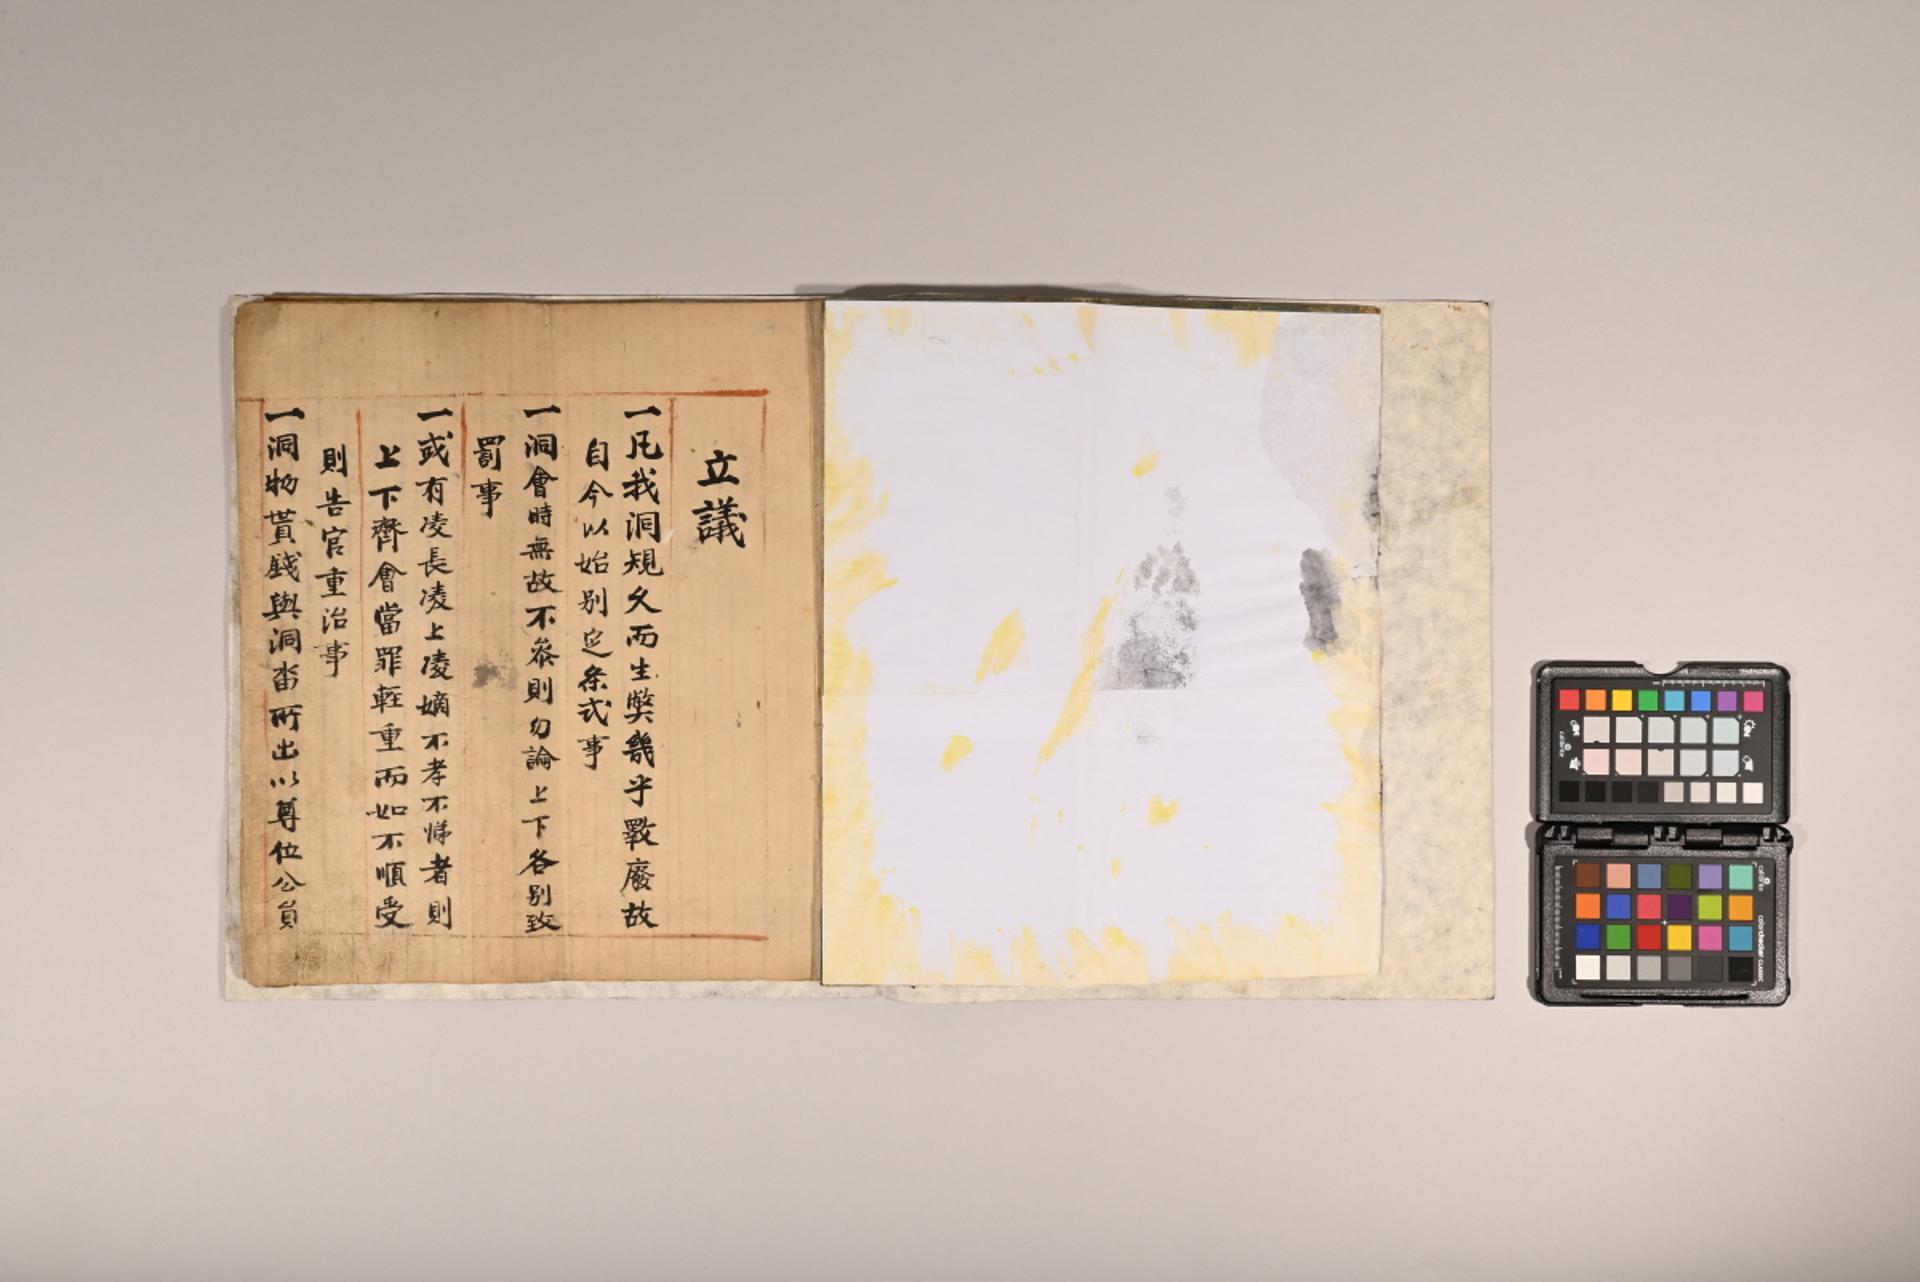 立議
一凡我洞規久而生弊幾乎毀廢故
自今以始别定条式事
一洞會時無故不叅則勿論上下各别致
罰事
一或有凌長凌上凌嫡不孝不悌者則
上下齊會當罪輕重而如不順受
則告官重治事
一洞物貰錢與洞畓所出以尊位公員